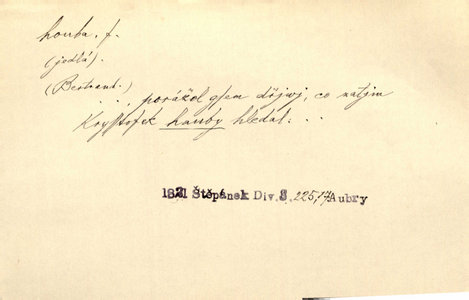 houba, f.
(jedlá).
(Bertrand.)
..., porážel gsem dřjwj, co zatjm
Krysstofek hauby hledal...
1821 Štěpánek Div.3, 225,17 Aubry